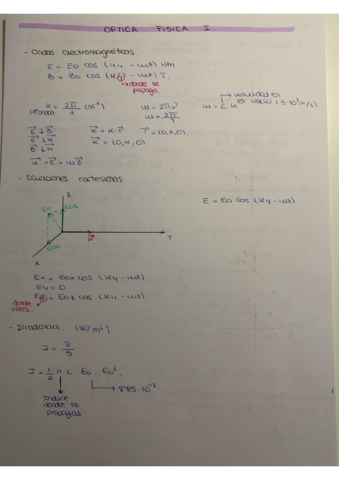 OPTICA FISICA I.
- Ondas electromagnéticas
E = E0 cos (ky - wt) V/m
B = B0 cos (ky - wt) T.
↳ donde se propaga
K = 2π/λ (m⁻¹)
w = 2πν
w = 2π/T
w = c·K
→ velocidad en el vacío (3·10⁸ m/s)
E ⊥ B
E ⊥ K
B ⊥ K
K = K·r
r = (0,1,0)
K = (0,K,0)
- Ecuaciones cartesianas
E = E0 cos (ky - wt)
z
E0
E0z
E0x
y
x
Ex = E0x cos (ky - wt)
Ey = 0
Ez = E0z cos (ky - wt)
donde vibra
- Irradiancia (W/m²)
I = P/S
I = 1/2 n c · ε0 · E0².
→ 8'85·10⁻¹²
Indice donde se propaga